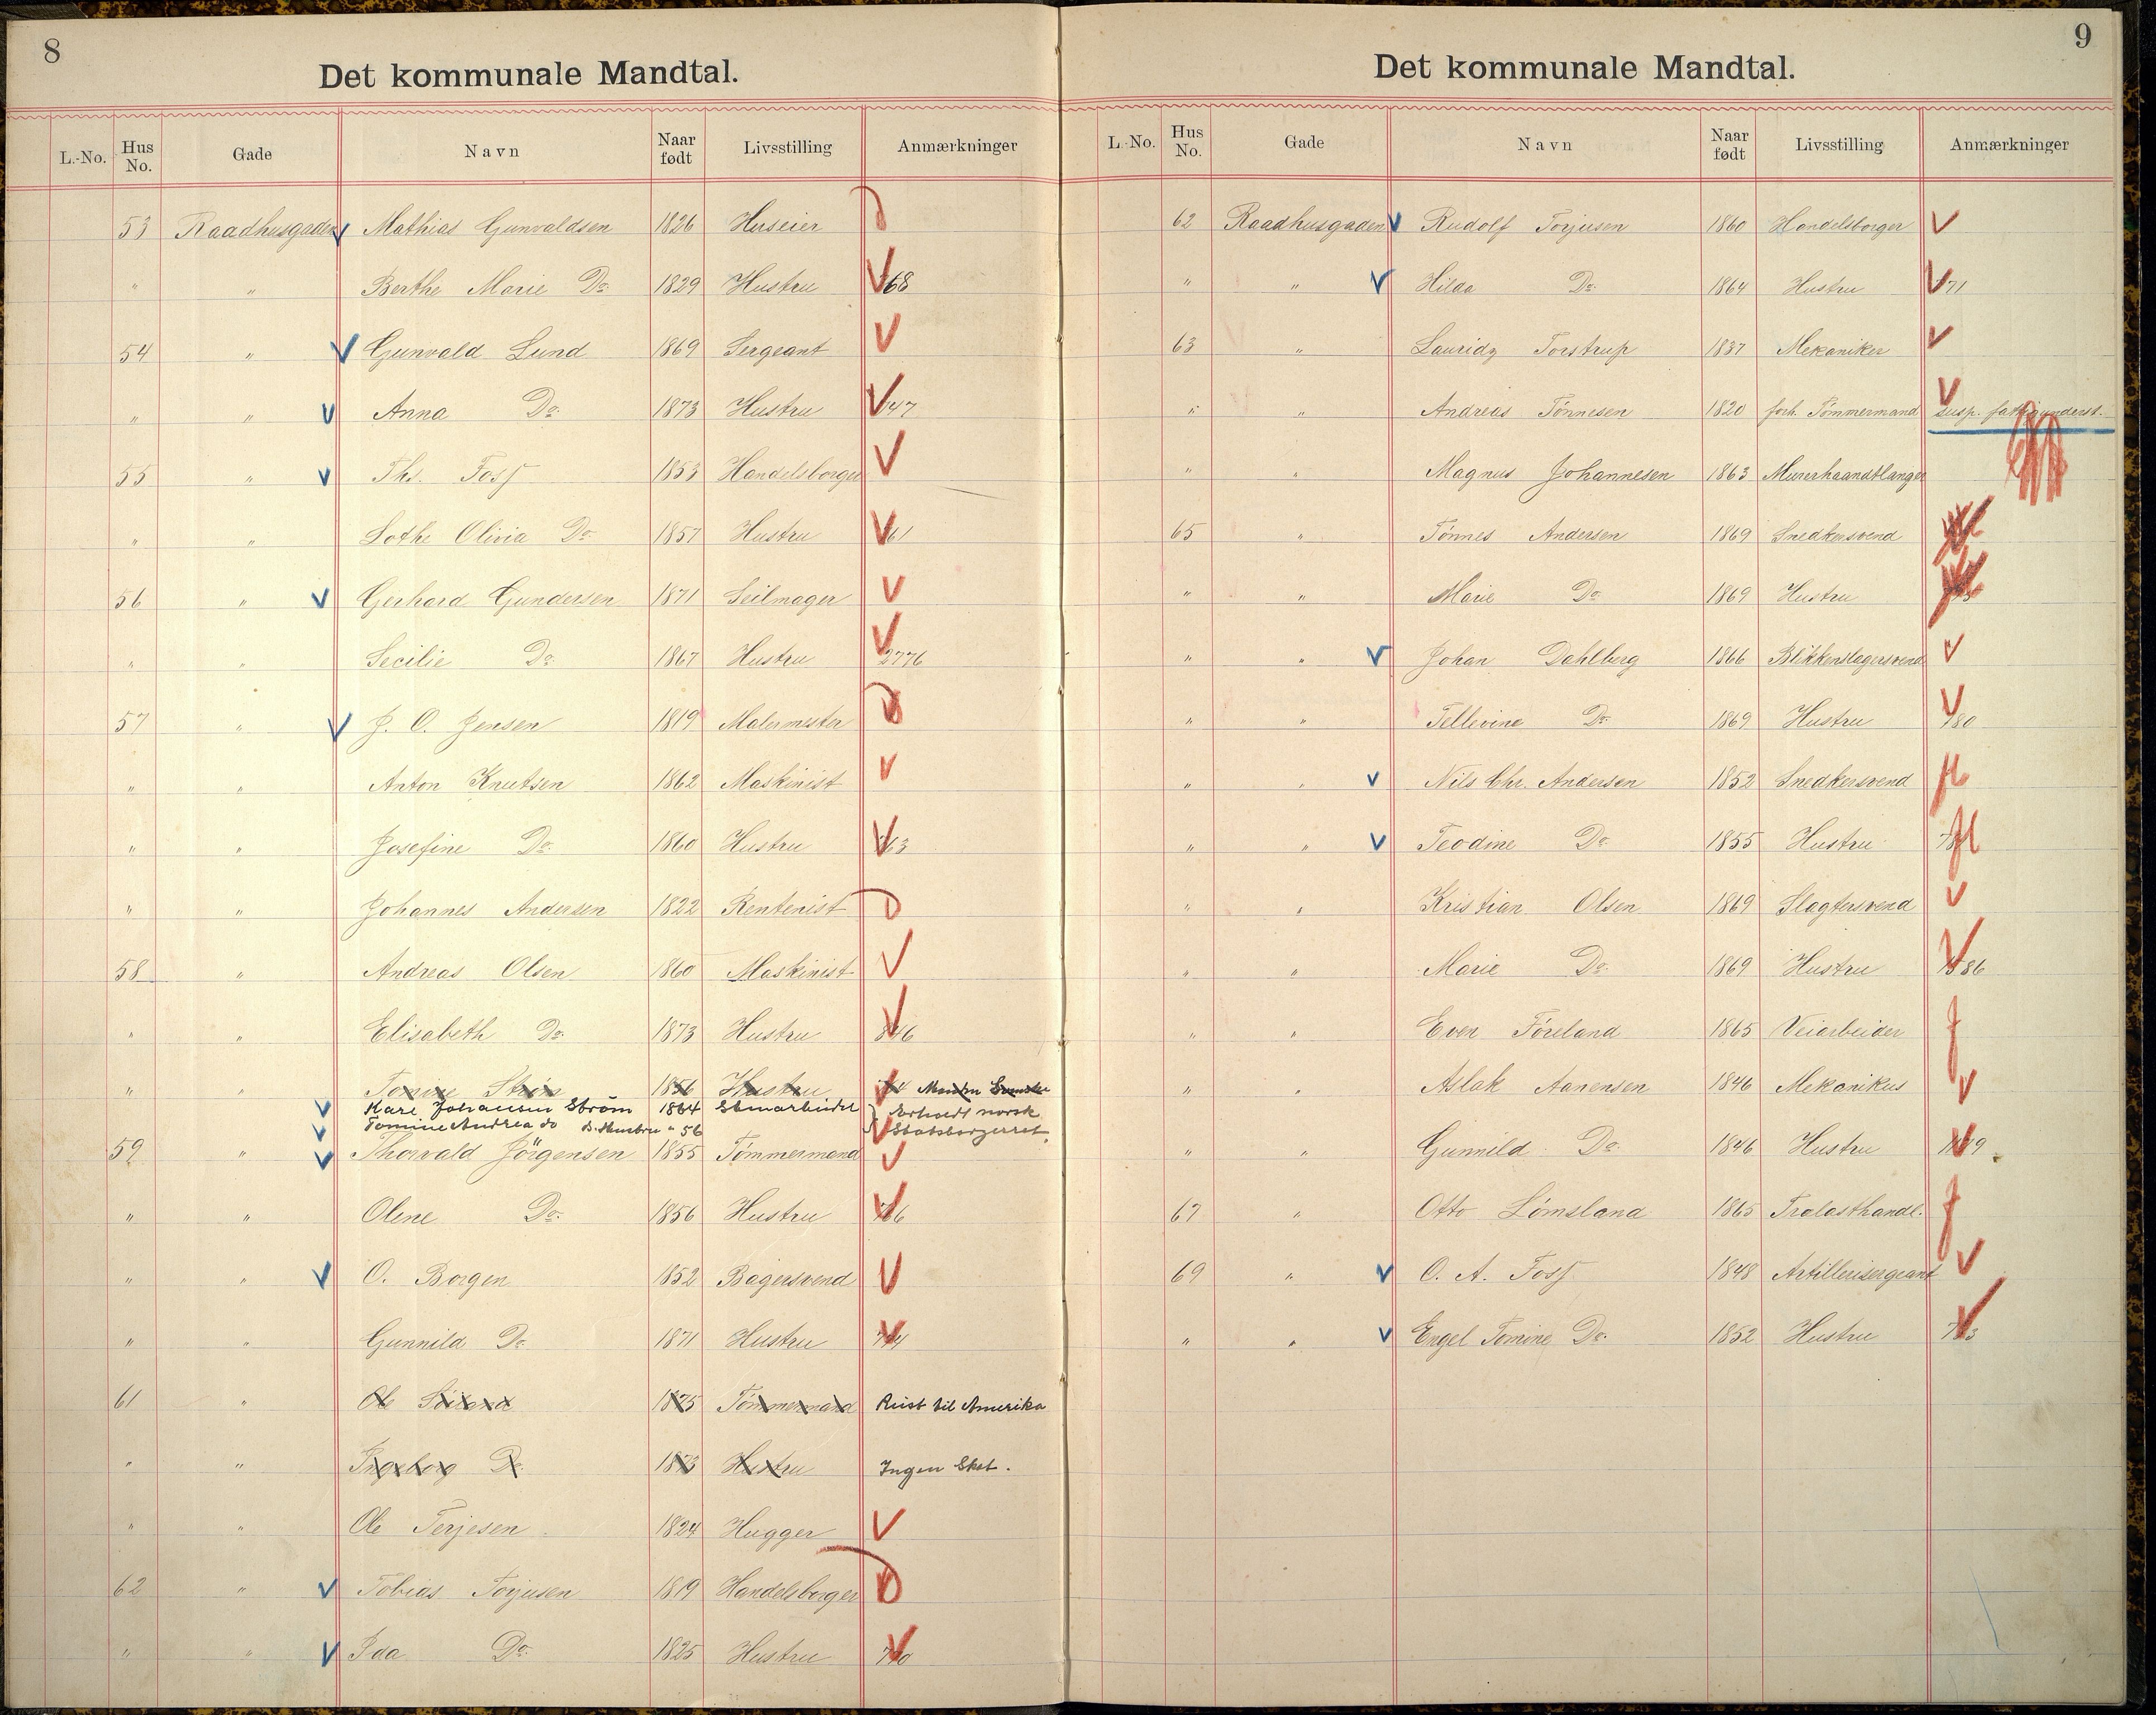 8
Det kommunale Mandtal.
L.-No. Hus No. Gade Navn Naar født Livsstilling Anmærkninger
53 Raadhusgaden Mathias Gunvaldsen 1826 Huseier
" " Berthe Marie Do. 1829 Hustru 68
54 " Gunvald Lund 1869 Sergeant
" " Anna Do. 1873 Hustru 47
55 " Ths. Foss 1853 Handelsborger
" " Lothe Olivia Do. 1857 Hustru 61
56 " Gerhard Gundersen 1871 Seilmager
" " Secilie Do. 1867 Hustru 2776
57 " J. O. Jensen 1819 Malermester
" " Anton Knutsen 1862 Maskinist
" " Josefine Do. 1860 Hustru 63
" " Johannes Andersen 1822 Rentenist
58 " Andreas Olsen 1860 Maskinist
" " Elisabeth Do. 1873 Hustru 846
" " Tomine Strøm 1856 Hustru
Karl Johansen Ström 1864 Stenarbeider } Erholdt norsk
Tomine Andrea do D. Hustru " 56 Statsborgerret.
59 " Thorvald Jörgensen 1855 Tømmermand
" " Olene Do. 1856 Hustru 766
" " O. Borgen 1852 Bagersvend
" " Gunnild Do. 1871 Hustru 744
61 " Ole 1875 Tømmermand Reist til Amerika
" " Ingeborg Do. 1873 Hustru Ingen Skat.
" " Ole Terjesen 1824 Hugger
62 " Tobias Torjusen 1819 Handelsborger
" " Ida Do. 1825 Hustru 770
9
Det kommunale Mandtal.
L.-No. Hus No. Gade Navn Naar født Livsstilling Anmærkninger
62 Raadhusgaden Rudolf Torjusen 1860 Handelsborger
" " Hilda Do. 1864 Hustru 71
63 " Lauridz Torstrup 1837 Mekaniker
" " Andreas Tønnesen 1820 forh. Tømmermand susp. fattigunderst.
" " Magnus Johannesen 1863 Murerhaandtlanger
65 " Tønnes Andersen 1869 Snedkersvend
" " Marie Do. 1869 Hustru
" " Johan Dahlberg 1866 Blikkenslagersvend
" " Tellevine Do. 1869 Hustru 780
" " Nils Chr. Andersen 1852 Snedkersvend
" " Teodine Do. 1855 Hustru
" " Kristian Olsen 1869 Slagtersvend
" " Marie Do. 1869 Hustru 86
" " Even Föreland 1865 Veiarbeider
" " Aslak Aanensen 1846 Mekanikus
" " Gunnild Do. 1846 Hustru
67 " Otto Lömsland 1865 Trælasthandl.
69 " O. A. Foss 1848 Artillerisergeant
" " Engel Tomine Do. 1852 Hustru